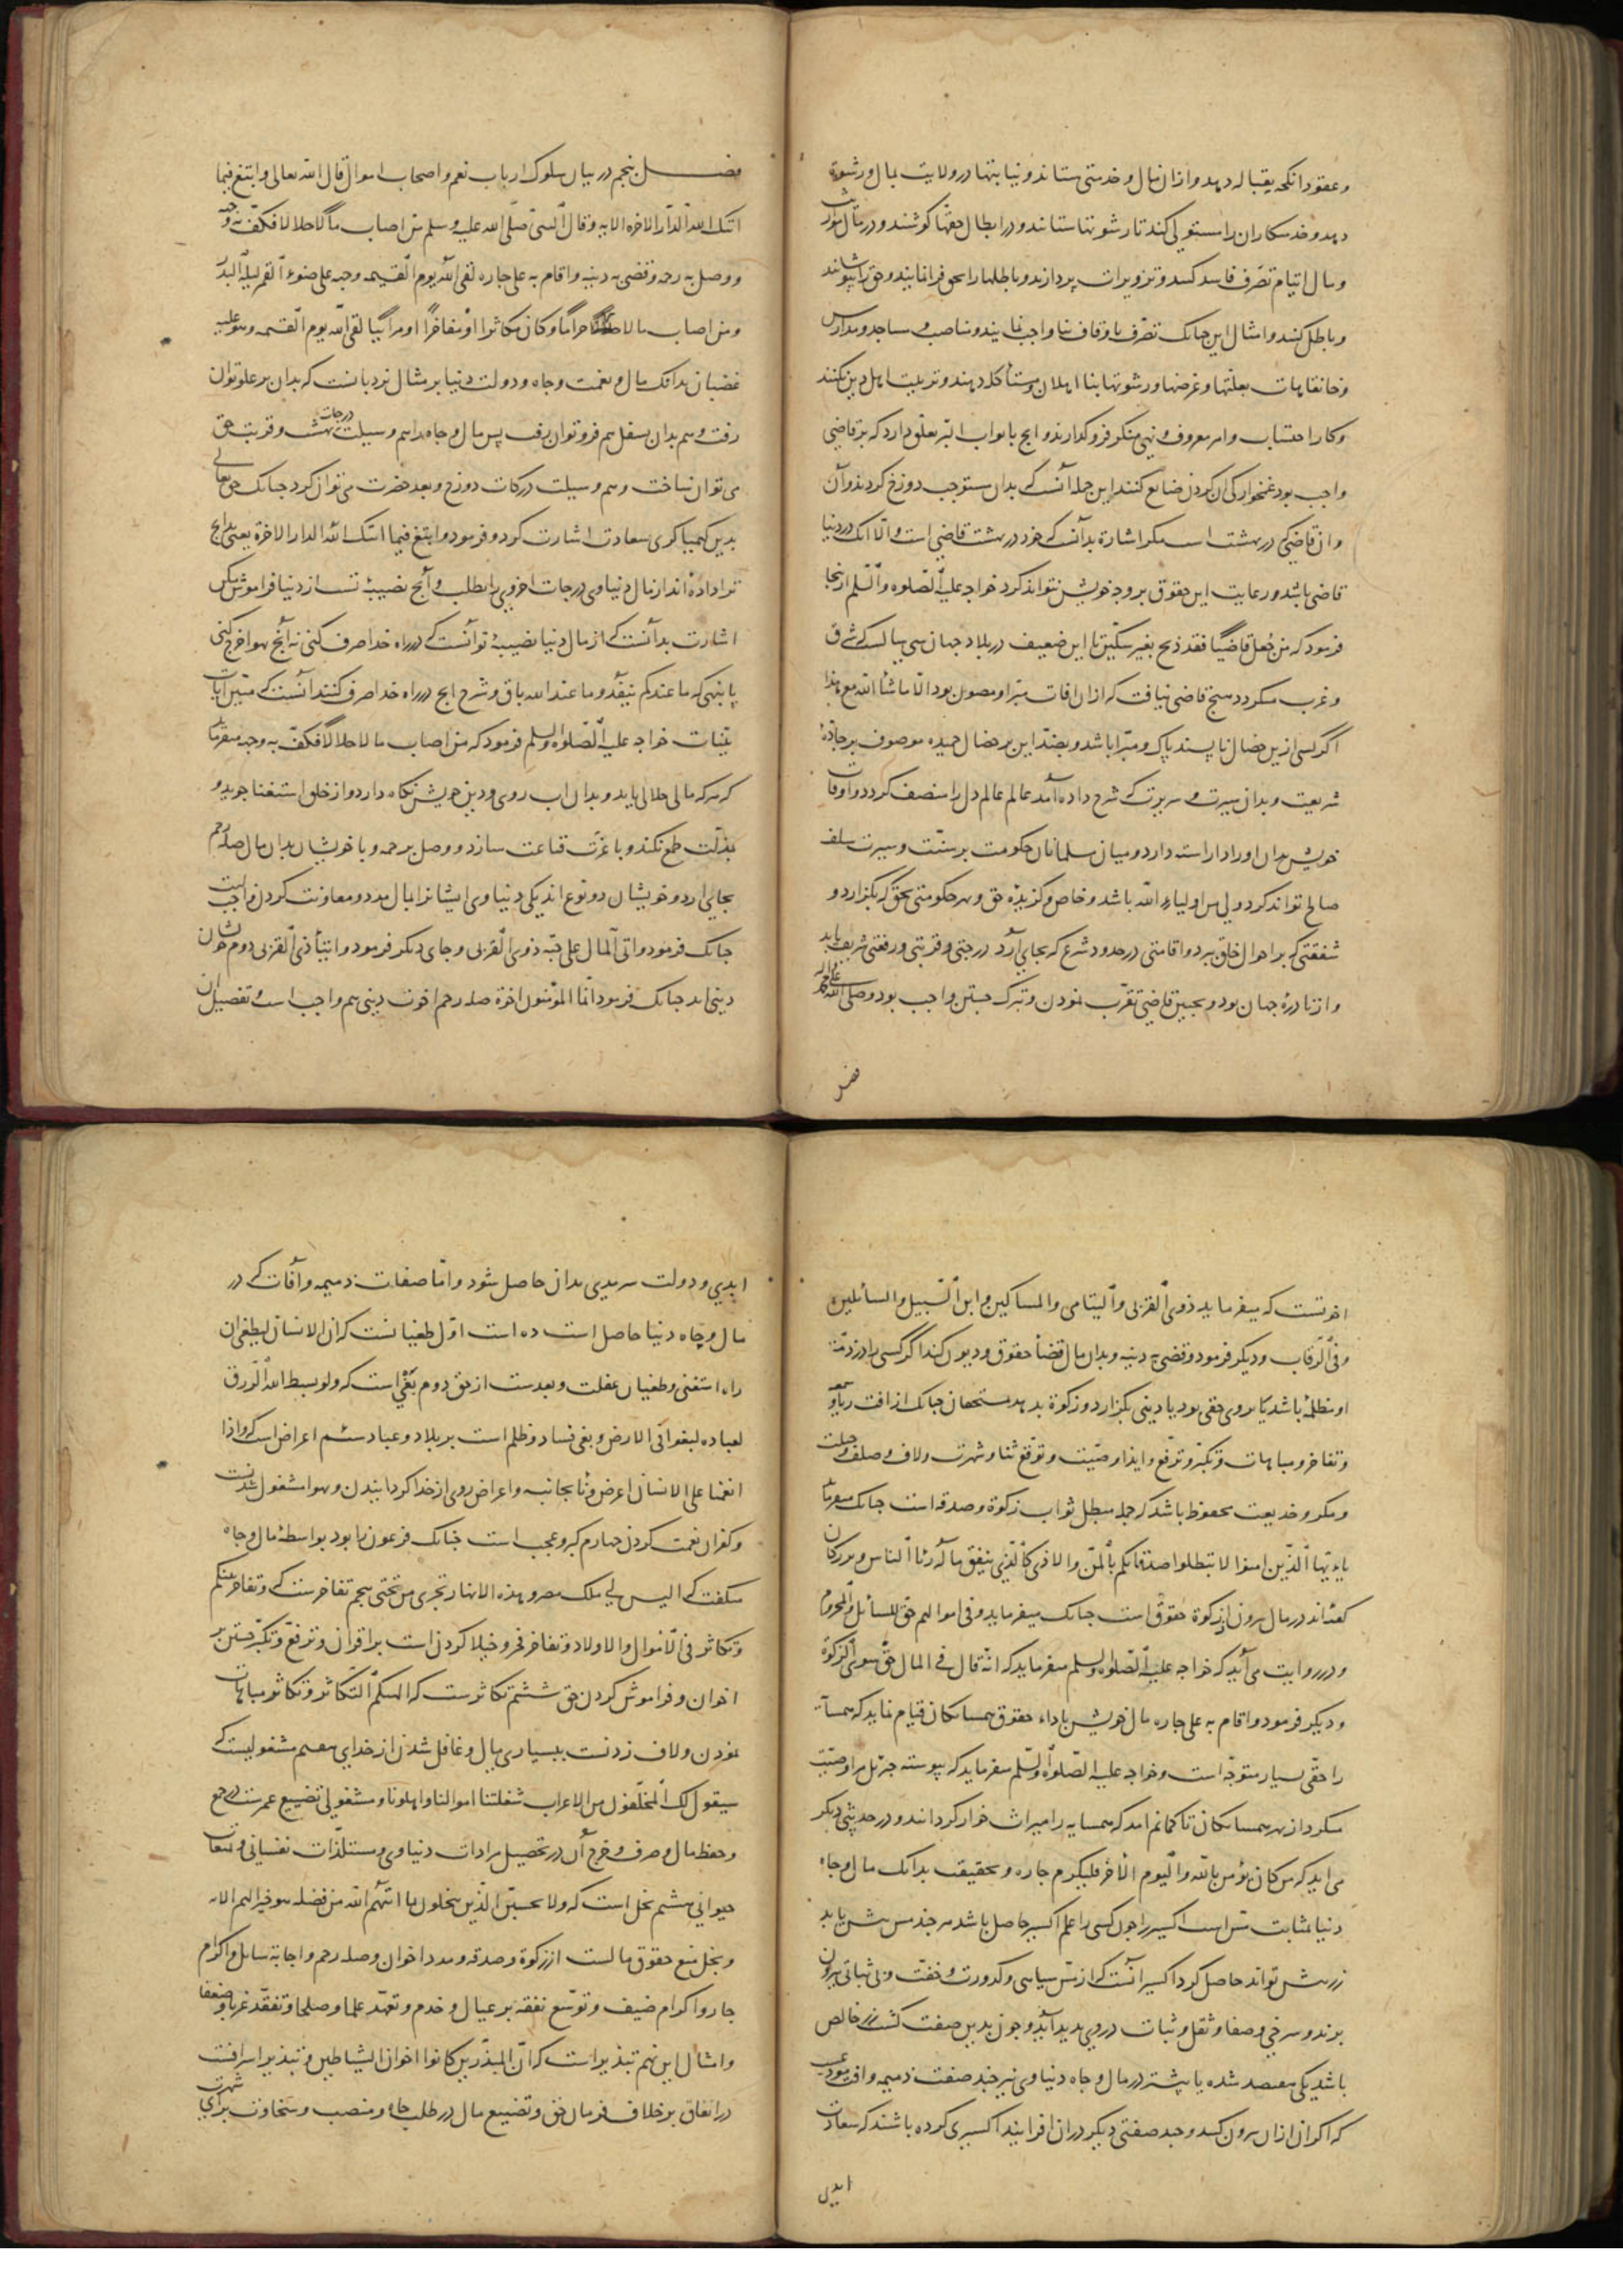 وعقود انکحه بقباله دهد وازان مال وخدمتی ستاند ونیابتها در ولایت بمال ورشوة
دهد وخدمتکاران را مستولی کند تا رشوتها ستانند ودر ابطال حقها کوشند ودر مال مواریث
ومال ایتام تصرف فاسد کنند وتزویرات پردازند وباطلها را بحق فرا نمایند وحق را بپوشانند
وباطل کنند وامثال این چنانک تصرف باوقاف بناواجب نمایند ومناصب ومساجد ومدارس
وخانقاهات بعلتها وغرضها ورشوتها بنااهلان ومستأکله دهند وتربیت اهل دین نکنند
وکار احتساب وامر معروف ونهی منکر فرو گذارند وانج بابواب البر تعلق دارد که بر قاضی
واجب بود غمخوارکی ان کردن ضایع کنند این جمله آنست که بدان مستوجب دوزخ کردند وآن
وان قاضی که در بهشت است مکر اشارة بدانست که خود در بهشت قاضی است والا انک در دنیا
قاضی باشد ورعایت این حقوق بر وجه خویش نتواند کرد خواجه علیه الصلوه والسلم ازینجا
فرمود که من جعل قاضیا فقد ذبح بغیر سکین تا این ضعیف در بلاد جهان سی سالست که شرق
وغرب میکردد هیچ قاضی نیافت که ازان افات مبرا ومصون بود الا ماشأ الله مع هذا
اگر کسی ازین خصال ناپسند پاک ومبرا باشد وبضد این بر خصال حمیده موصوف بر جادة
شریعت وبدان سیرت وسریرت که شرح داده آمد عالم عالم دل را منصف کردد واوقات
خویش بدان اوراد اراسته دارد ومیان مسلمانان حکومت بر سنت وسیرت سلف
صالح تواند کرد ولی من اولیاء الله باشد وخاص وگزیدۀ حق وبهر حکومتی بحق که بگزارد و
شفقتی که بر احوال خلق برد واقامتی در حدود شرع که بجای آرد درجتی وقربتی ورفعتی شریف یابد
واز نادرۀ جهان بود وبچنین قاضی تقرب نمودن وتبرک جستن واجب بود وصلی الله علی محمد واله
فصل
فصل پنجم در بیان سلوک ارباب نعم واصحاب اموال قال الله تعالی وابتغ فیما
اتیک الله الدار الاخرة الایه وقال النبی صلی الله علیه وسلم من اصاب مالا حلالا فکف به وجهه
ووصل به رحمه وقضی به دینه واقام به علی جاره لقی الله یوم القیمه وجهه علی ضوء القمر لیلة البدر
ومن اصاب مالا حراما وکان مکاثرا او مفاخرا او مرائیا لقی الله یوم القیمه وهو علیه
غضبان بدانک مال ونعمت وجاه ودولت دنیا بر مثال نردبانست که بدان بر علو توان
رفت وهم بدان بسفل هم فرو توان رفت پس مال وجاه را هم وسیلت درجات بهشت وقربت حق
می توان ساخت وهم وسیلت درکات دوزخ وبعد حضرت می توان کرد چنانک حق تعالی
بدین کیمیا کری سعادت اشارت کرد وفرمود وابتغ فیما اتیک الله الدار الاخرة یعنی بدانج
ترا داده اند از مال دنیاوی درجات اخروی را بطلب وآنج نصیبۀ تست از دنیا فراموش مکن
اشارت بدانست که از مال دنیا نصیبۀ تو آنست که در راه خدا صرف کنی نه آنج بهوا خرج کنی
یا بنهی که ما عندکم ینفد وما عند الله باق وشرح انج در راه خدا صرف کنند آنست که مبین ایات
بینات خواجه علیه الصلوه والسلم فرمود که من اصاب مالا حلالا فکف به وجهه میفرماید
که هر که مالی حلالی یابد وبدان اب روی ودین خویش نگاه دارد واز خلق استغنا جوید و
بذلت طمع نکند وبا عزت قناعت سازد ووصل به رحمه وبا خویشان بدان مال صله رحم
بجای ارد وخویشان دو نوع اند یکی دنیاوی ایشانرا بمال مدد ومعاونت کردن واجبست
چنانک فرمود واتی المال علی حبه ذوی القربی وجای دیگر فرمود وایتأ ذی القربی دوم خویشان
دینی اند چنانک فرمود انما المؤمنون اخوة صله رحم اخوت دینی هم واجب است وتفصیل ان
اخوتست که میفرماید ذوی القربی والیتامی والمساکین وابن السبیل والسائلین
وفی الرقاب ودیگر فرمود وقضی به دینه وبدان مال قضأ حقوق ودیون کند اگر کسی را در ذمۀ
او مظلمۀ باشد یا بروی حقی بود یا دینی بگزارد وزکوة بدهد بمستحقان چنانک از افت ریا وسمعه
وتفاخر ومباهات وتکبر وترفع وایذا ومنت وتوقع ثنا وشهرت ولاف وصلف وحیلت
ومکر وخدیعت محفوظ باشد که جمله مبطل ثواب زکوة وصدقه است چنانک میفرماید
یاءیها الذین امنوا لا تبطلوا صدقاتکم بالمن والاذی کالذی ینفق ماله رئا الناس وبزرکان
گفته اند در مال برون از زکوة حقوق است چنانک میفرماید وفی اموالهم حق للسائل والمحروم
ودر روایت می آید که خواجه علیه الصلوه والسلم میفرماید که انه قال فی المال حق سوی الزکوة
ودیگر فرمود واقام به علی جاره مال خویش باداء حقوق همسایکان قیام نماید که همسایه
را حقی بسیار متوجه است وخواجه علیه الصلوه والسلم میفرماید که پیوسته جبرئل مرا وصیت
میکرد از بهر همسایکان تا کمانم امد که همسایه را میراث خوار کردانند ودر حدیثی دیگر
می اید که من کان یؤمن بالله والیوم الآخر فلیکرم جاره وبحقیقت بدانک مال وجاه
دنیا بمثابت مس است اکسیر را چون کسی را علم اکسیر حاصل باشد هر چند مس بیش یابد
زر بیش تواند حاصل کرد اکسیر آنست که از مس سیاهی وکدورت وخفت وبی ثباتی بیرون
برند وسرخی وصفا وثقل وثبات در وی پدید آید وچون بدین صفت گشت زر خالص
باشد یکی هفتصد شده یا بیشتر در مال وجاه دنیاوی نیز چند صفت ذمیمه وافت
که اکر ان ازان برون کنند وچند صفتی دیگر دران افزایند اکسیری کرده باشند که سعادت
ابدی
ابدی ودولت سرمدی بدان حاصل شود واما صفات ذمیمه وآفات که در
مال وجاه دنیا حاصل است ده است اول طغیانست که ان الانسان لیطغی ان
راه استغنی وطغیان غفلت وبعدست از حق دوم بغی است که ولو بسط الله الرزق
لعباده لبغوا فی الارض وبغی فساد وظلم است بر بلاد وعباد سئم اعراض است که واذا
انعمنا علی الانسان اعرض ونأ بجانبه واعراض روی از خدا کردانیدن وبهوا مشغول شدنست
وکفران نعمت کردن چهارم کبر وعجب است چنانک فرعون را بود بواسطۀ مال وجاه
میگفت که الیس لی ملک مصر وهذه الانهار تجری من تحتی پنجم تفاخرست که وتفاخر بینکم
وتکاثر فی الاموال والاولاد وتفاخر فخر وخیلا کردن است بر اقران وترفع وتکبر جستن بر
اخوان وفراموش کردن حق ششم تکاثرست که الهیکم التکاثر وتکاثر مباهات
نمودن ولاف زدنست ببسیاری مال وغافل شدن از خدای هفتم مشغولیست که
سیقول لک المخلفون من الاعراب شغلتنا اموالنا واهلونا ومشغولی تضییع عمرست در جمع
وحفظ مال وصرف وخرج آن در تحصیل مرادات دنیاوی ومستلذات نفسانی وتمتعات
حیوانی هشتم بخل است که ولا تحسبن الذین یبخلون بما اتیهم الله من فضله هو خیرا لهم الایه
وبخل منع حقوق مالست از زکوة وصدقه ومدد اخوان وصله رحم واجابة سائل واکرام
جار واکرام ضیف وتوسع نفقه بر عیال وخدم وتعهد علما وصلحا وتفقد غربا وضعفا
وامثال این نهم تبذیر است که ان المبذرین کانوا اخوان الشیاطین وتبذیر اسرافست
در انفاق بر خلاف فرمان حق وتضییع مال در طلب جاه ومنصب وسخاوت برای شهرت